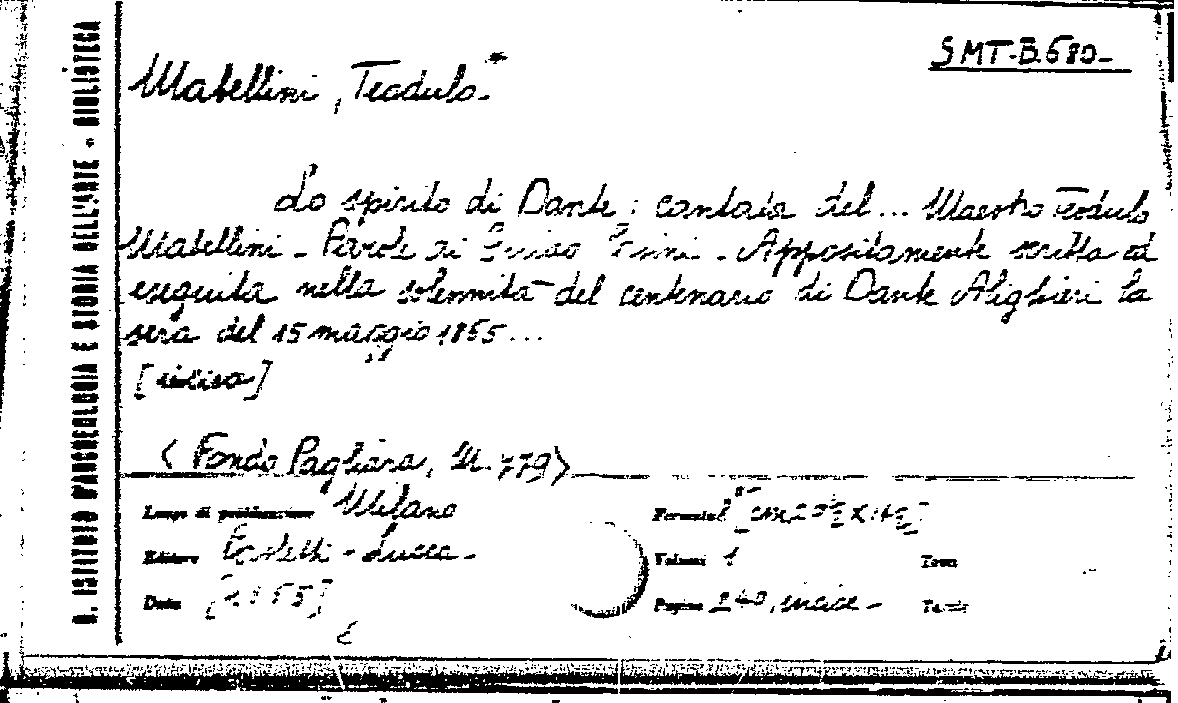 SMT-B.680-
Mabellini, Teodulo-*
Lo spirito di Dante; cantata del... Maestro Teodulo
Mabellini - Parole di Guido - Appositamente scritta ed
eseguita nella solennità del centenario di Dante Alighieri la
sera del 15 maggio 1865...
[incisa]
< Fondo Pagliara, M. 779>
Luogo di pubblicazione Milano
Formato
Editore - Lucca -
Volumi 1
Tomi
Data [1865]
Pagine 240, incise -
Tavole
R. ISTITUTO D'ARCHEOLOGIA E STORIA DELL'ARTE - BIBLIOTECA